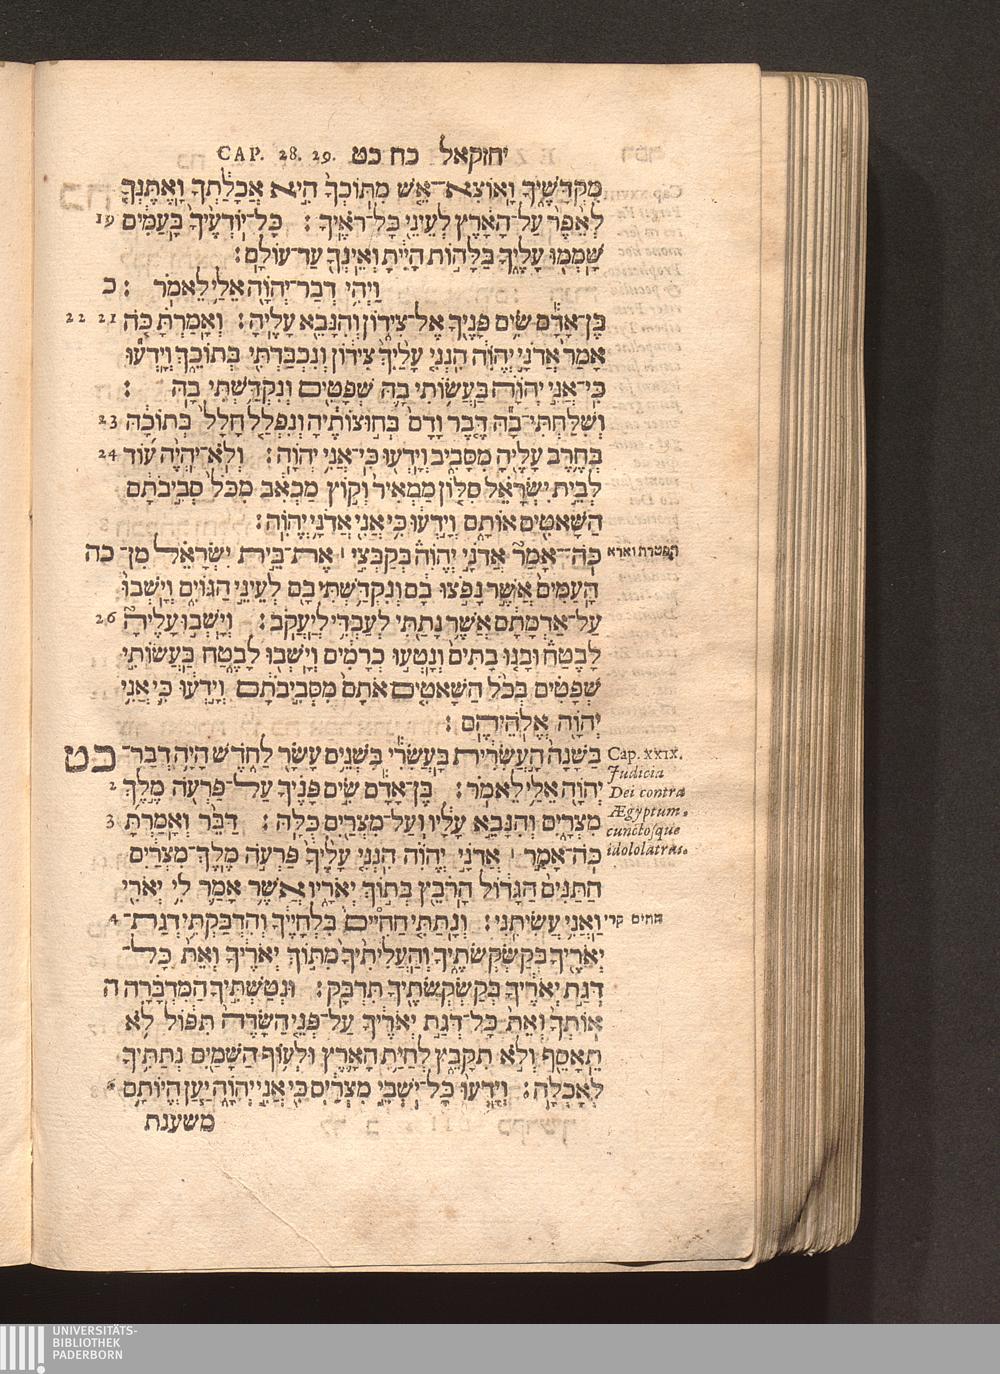 CAP. 28. 29. יחזקאל כח כט
מִקְדָּשֶׁיךָ וָאוֹצִא־אֵשׁ מִתּוֹכְךָ הִיא אֲכָלַתְךָ וָאֶתֶּנְךָ
לְאֵפֶר עַל־הָאָרֶץ לְעֵינֵי כָּל־רֹאֶיךָ׃ כָּל־יוֹדְעֶיךָ בָּעַמִּים 19
שָׁמְמוּ עָלֶיךָ בַּלָּהוֹת הָיִיתָ וְאֵינְךָ עַד־עוֹלָם׃
וַיְהִי דְבַר־יְהוָֹה אֵלַי לֵאמֹר׃ כ
בֶּן־אָדָם שִׂים פָּנֶיךָ אֶל־צִידוֹן וְהִנָּבֵא עָלֶיהָ׃ וְאָמַרְתָּ כֹּה 21 22
אָמַר אֲדֹנָי יֱהוִֹה הִנְנִי עָלַיִךְ צִידוֹן וְנִכְבַּדְתִּי בְּתוֹכֵךְ וְיָדְעוּ
כִּי־אֲנִי יְהוָֹה בַּעֲשׂוֹתִי בָהּ שְׁפָטִים וְנִקְדַּשְׁתִּי בָהּ׃
וְשִׁלַּחְתִּי־בָהּ דֶּבֶר וָדָם בְּחוּצוֹתֶיהָ וְנִפְלַל חָלָל בְּתוֹכָהּ 23
בְּחֶרֶב עָלֶיהָ מִסָּבִיב וְיָדְעוּ כִּי־אֲנִי יְהוָֹה׃ וְלֹא־יִהְיֶה עוֹד 24
לְבֵית יִשְׂרָאֵל סִלּוֹן מַמְאִיר וְקוֹץ מַכְאִב מִכֹּל סְבִיבֹתָם
הַשָּׁאטִים אוֹתָם וְיָדְעוּ כִּי אֲנִי אֲדֹנָי יֱהוִֹה׃
הפטרת וארא כֹּה־אָמַר אֲדֹנָי יֱהוִֹה בְּקַבְּצִי ׀ אֶת־בֵּית יִשְׂרָאֵל מִן־ כה
הָעַמִּים אֲשֶׁר נָפֹצוּ בָם וְנִקְדַּשְׁתִּי בָם לְעֵינֵי הַגּוֹיִם וְיָשְׁבוּ
עַל־אַדְמָתָם אֲשֶׁר נָתַתִּי לְעַבְדִּי לְיַעֲקֹב׃ וְיָשְׁבוּ עָלֶיהָ 26
לָבֶטַח וּבָנוּ בָתִּים וְנָטְעוּ כְרָמִים וְיָשְׁבוּ לָבֶטַח בַּעֲשׂוֹתִי
שְׁפָטִים בְּכֹל הַשָּׁאטִים אֹתָם מִסְּבִיבֹתָם וְיָדְעוּ כִּי אֲנִי
יְהוָֹה אֱלֹהֵיהֶם׃
Cap. XXIX. בַּשָּׁנָה הָעֲשִׂרִית בָּעֲשִׂרִי בִּשְׁנֵים עָשָׂר לַחֹדֶשׁ הָיָה דְבַר־ כט
Judicia
יְהוָֹה אֵלַי לֵאמֹר׃ בֶּן־אָדָם שִׂים פָּנֶיךָ עַל־פַּרְעֹה מֶלֶךְ 2
Dei contra
מִצְרָיִם וְהִנָּבֵא עָלָיו וְעַל־מִצְרַיִם כֻּלָּהּ׃ דַּבֵּר וְאָמַרְתָּ 3
Ægyptum,
cunctosque
כֹּה־אָמַר ׀ אֲדֹנָי יֱהוִֹה הִנְנִי עָלֶיךָ פַּרְעֹה מֶלֶךְ־מִצְרַיִם
idololatras.
הַתַּנִּים הַגָּדוֹל הָרֹבֵץ בְּתוֹךְ יְאֹרָיו אֲשֶׁר אָמַר לִי יְאֹרִי
חחים קרי וַאֲנִי עֲשִׂיתִנִי׃ וְנָתַתִּי חַחִיים בִּלְחָיֶיךָ וְהִדְבַּקְתִּי דְגַת־ 4
יְאֹרֶיךָ בְּקַשְׂקְשֹׂתֶיךָ וְהַעֲלִיתִיךָ מִתּוֹךְ יְאֹרֶיךָ וְאֵת כָּל־
דְּגַת יְאֹרֶיךָ בְּקַשְׂקְשֹׂתֶיךָ תִּדְבָּק׃ וּנְטַשְׁתִּיךָ הַמִּדְבָּרָה ה
אוֹתְךָ וְאֵת כָּל־דְּגַת יְאֹרֶיךָ עַל־פְּנֵי הַשָּׂדֶה תִּפּוֹל לֹא
תֵאָסֵף וְלֹא תִקָּבֵץ לְחַיַּת הָאָרֶץ וּלְעוֹף הַשָּׁמַיִם נְתַתִּיךָ
לְאָכְלָה׃ וְיָדְעוּ כָּל־יֹשְׁבֵי מִצְרַיִם כִּי אֲנִי יְהוָֹה יַעַן הֱיוֹתָם 6
משענת
UNIVERSITÄTS-
BIBLIOTHEK
PADERBORN